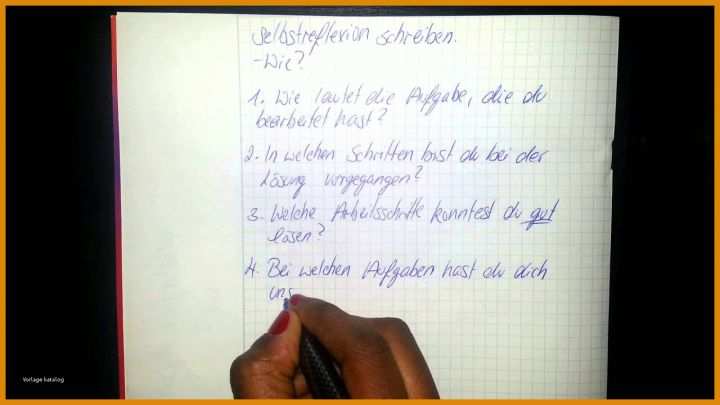 Selbstreflexion schreiben.
- Wie?
1. Wie lautet die Aufgabe, die du
bearbeitet hast?
2. In welchen Schritten bist du bei der
Lösung vorgegangen?
3. Welche Arbeitsschritte konntest du gut
lösen?
4. Bei welchen Aufgaben hast du dich
uns
Vorlage katalog